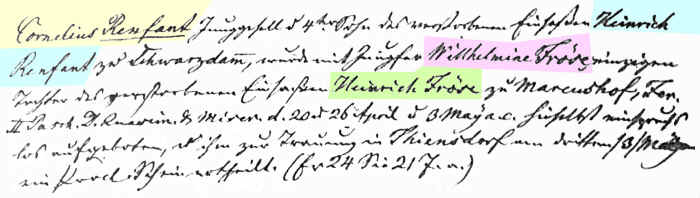 Cornelius Renfant Junggesell d 4te Sohn des verstorbenen Einsaßen Heinrich
Renfant zu Schwarzdam, wurde mit Jungfer Willhelmine Fröse einzigen
Tochter des verstorbenen Einsaßen Heinrich Fröse zu Marcushof, Fer.
II Pasch. D. & d. 20 d 26 April d 3 May a.c. hieselbst einspruchs
los aufgeboten, ihm zur Trauung in Thiensdorf am dritten /3/ May
ein Procl. Schein ertheilt. (Er 24 Sie 21 J. a.)